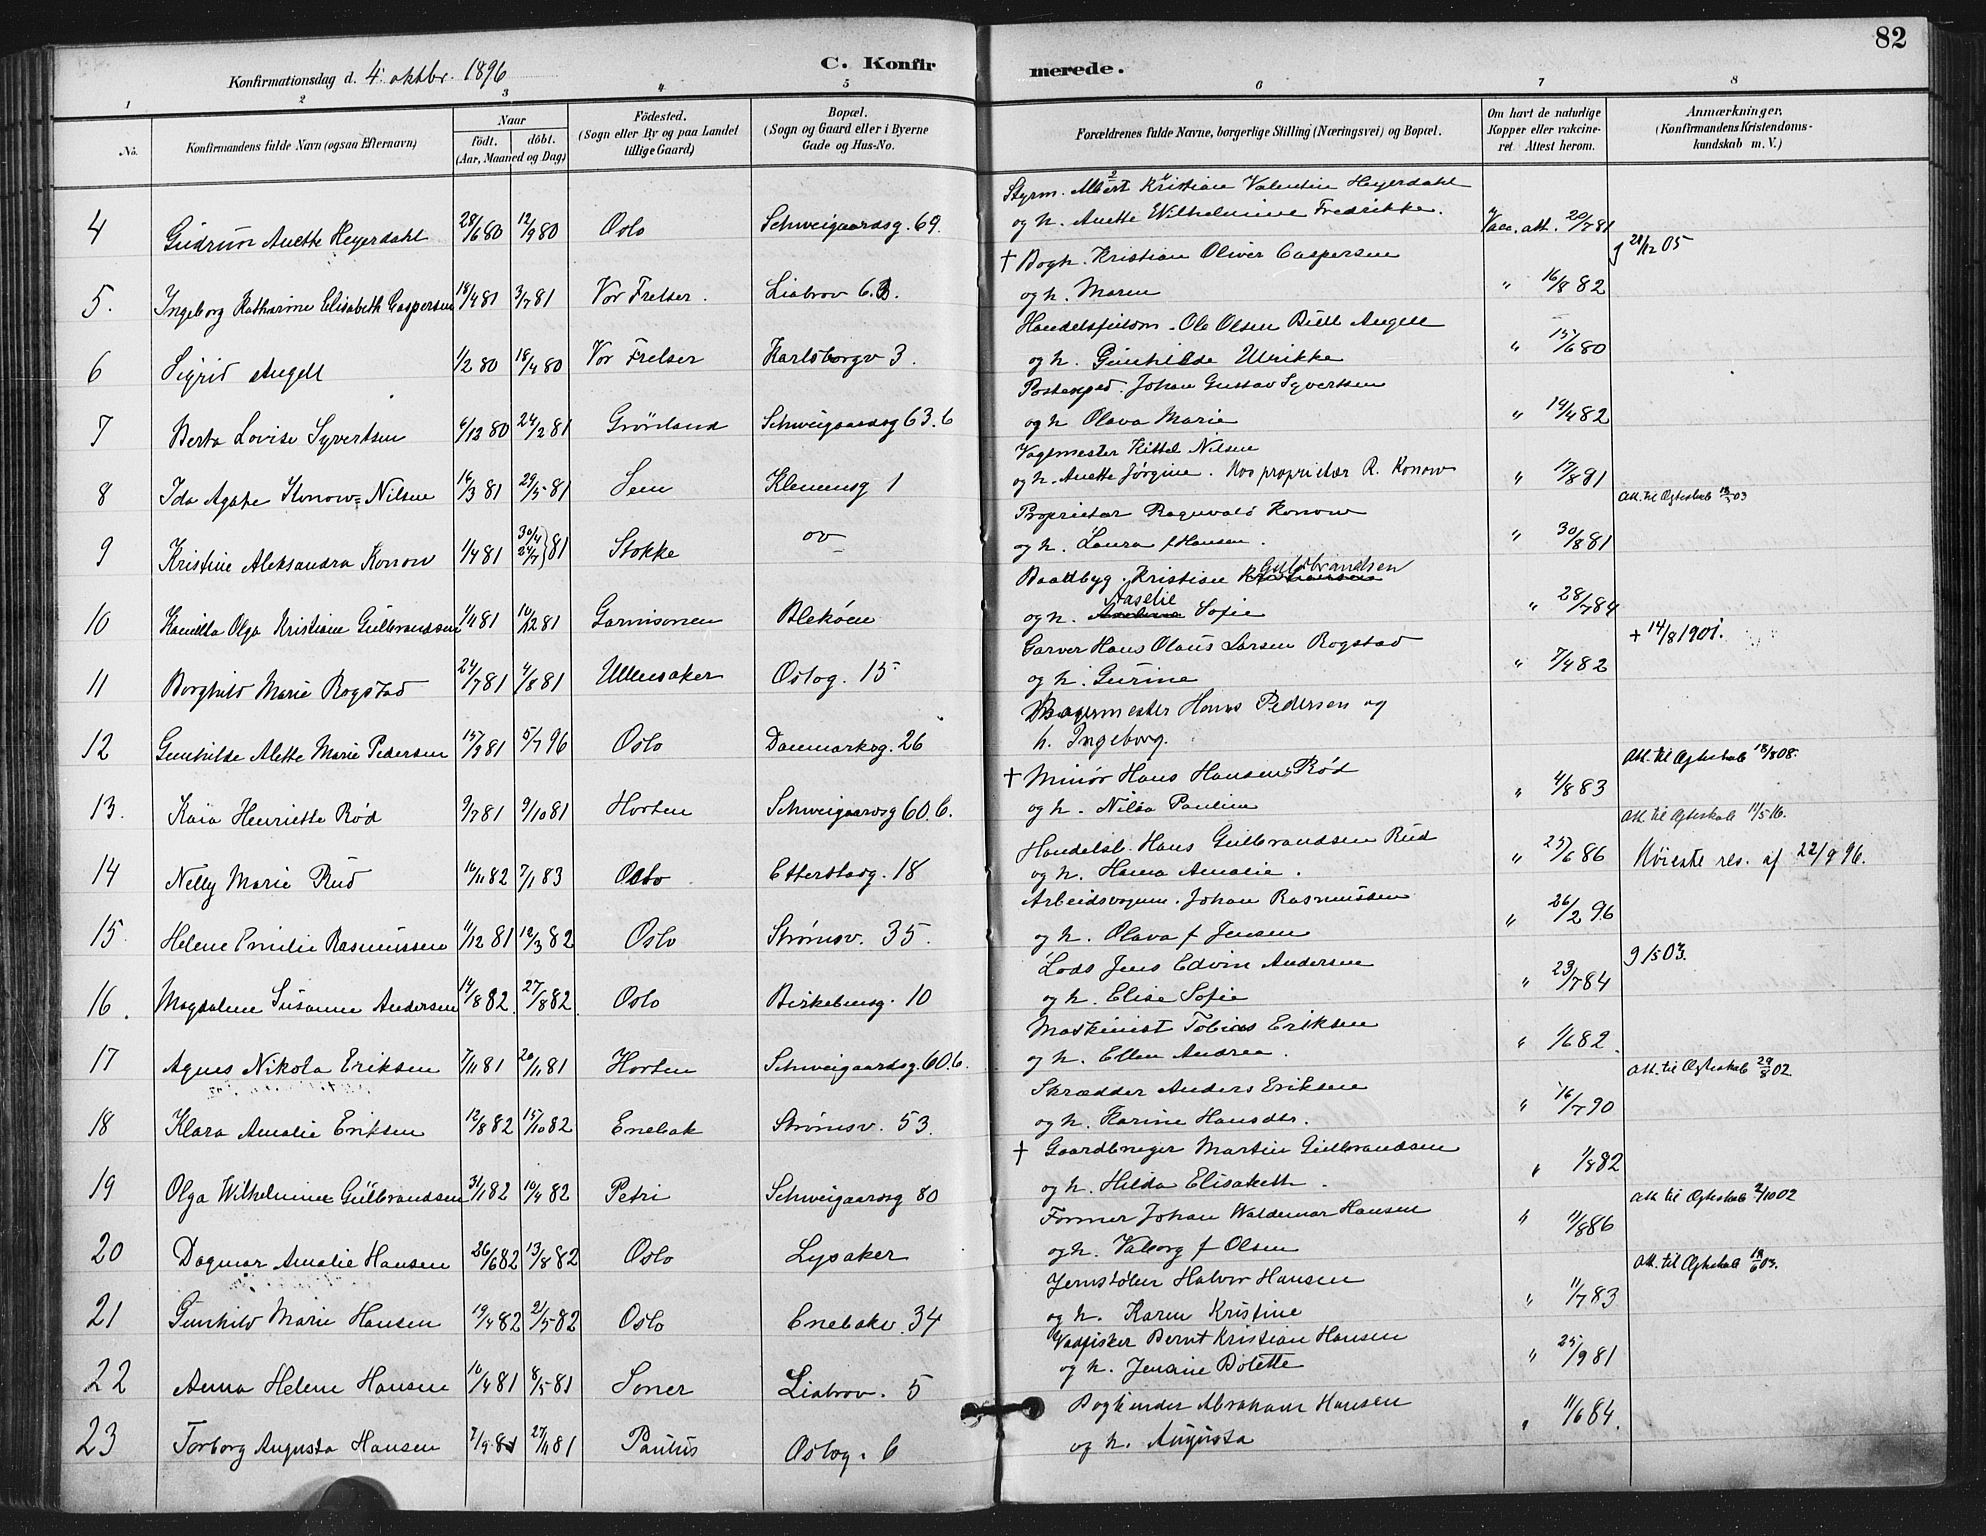 82
Konfirmationsdag d. 4. oktbr. 1896
C. Konfirmerede.
1 2 3 4 5 6 7 8
No.
Konfirmandens fulde Navn (ogsaa Efternavn)
Naar
födt. döbt.
(Aar, Maaned og Dag)
Födested.
(Sogn eller By og paa Landet
tillige Gaard)
Bopæl.
(Sogn og Gaard eller i Byerne
Gade og Hus-No.
Forældrenes fulde Navne, borgerlige Stilling (Næringsvei) og Bopæl.
Om havt de naturlige
Kopper eller vakcine-
ret. Attest herom.
Anmærkninger,
(Konfirmandens Kristendoms-
kundskab m. V.)
4 Gudrun Anette Heyerdahl 28/6 80 12/9 80 Oslo Schweigaardsg. 69. Styrm. Albert Kristian Valentin Heyerdahl
og h. Anette Wilhelmine Fredrikke. Vacc. att. 20/7 81
5. Ingeborg Katharine Elisabeth Caspersen 18/4 81 3/7 81 Vor Frelser. Liabrov 6.B. † Bogh. Kristian Oliver Caspersen
og h. Maren " 16/8 82 28/12 05
6 Sigrid Angell 1/2 80 18/4 80 Vor Frelser Karlsborgv 3. Handelsfuldm. Ole Olsen Bull Angell
og h. Gunhilde Ulrikke " 15/6 80
7 Berta Lovise Syvertsen 6/12 80 24/2 81 Grönland Schweigaardsg 63.6 Postexped. Johan Gustav Syvertsen
og h. Olava Marie " 14/4 82
8 Ida Agathe Konow=Nilsen 16/3 81 29/5 81 Sem Klemensg 1 Vagtmester Kittel Nilsen
og h. Anette Jørgine. Hos proprietær R. Konow " 17/8 91 Att. til Ægteskab 18/5 03
9 Kristine Aleksandra Konow 1/4 81 30/4 24/7 } 81 Stokke ov Proprietær Ragnvald Konow
og h. Laura f Hansen. " 30/8 81
10 Kamilla Olga Kristiane Gulbrandsen 1/4 81 10/12 81 Garnisonen Blekøen Baadbyg. Kristian Guldbrandsen
og h. Aaselie Sofie " 28/7 84
11 Borghild Marie Rogstad 24/7 81 4/8 81 Ullensaker Oslog. 15 Garver Hans Olaus Larsen Rogstad
og h. Gurine " 7/4 82 + 14/8 1901.
12 Gunhilde Alette Marie Pedersen 15/9 81 5/7 96 Oslo Danmarksg. 26 Bagermester Hans Pedersen og
h. Ingeborg.
13. Kaia Henriette Rød 9/7 81 9/10 81 Horten Schweigaardsg 60.6. † Minör Hans Hansen Rød
og h. Nilia Pauline " 4/8 83 Att. til Ægteskab 18/8 08.
14 Nelly Marie Rud 16/11 82 7/1 83 Oslo Etterstadg. 18 Handelsb. Hans Gulbrandsen Rud
og h. Hanna Amalie. " 25/6 86 Att til Ægteskab 11/5 16.
Høieste res. af 22/9 96.
15. Helene Emilie Rasmussen 11/12 81 12/3 82 Oslo Strømsv. 35. Arbeidsvognm. Johan Rasmussen
og h. Olava f Jensen " 26/2 96
16. Magdalene Susanne Andersen 14/8 82. 27/8 82 Oslo Birkebeng. 10 Lods Jens Edvin Andersen
og h. Elise Sofie " 23/7 84 9/5 03.
17 Agnes Nikola Eriksen 7/11 81 20/11 81 Horten Schweigaardsg. 60.6. Maskinist Tobias Eriksen
og h. Ellen Andrea. " 1/6 82.
18 Klara Amalie Eriksen 12/8 82 15/10 82 Enebak Strømsv. 53. Skrædder Anders Eriksen
og h. Karine Hansdtr. " 16/7 90 Att. til Ægteskab 29/8 02.
19 Olga Wilhelmine Gulbrandsen 31/1 82 10/4 82 Petri Schweigaardsg 80 † Gaardbruger Martin Gulbrandsen
og h. Hilda Elisabeth. " 1/8 82
20 Dagmar Amalie Hansen 26/6 82 13/8 82 Oslo Lysaker Former Johan Waldemar Hansen
og h. Valborg f Olsen " 11/8 86 Att til Ægteskab 2/10 02
21 Gunhild Marie Hansen 19/4 82 21/5 82 Oslo Enebakv. 34 Jernstøber Halvor Hansen
og h. Karen Kristine " 11/7 83 Att. til Ægteskab 18/6 03.
22 Anna Helene Hansen 10/4 81 8/5 81 Soner Liabrov. 5 Vadfisker Bernt Kristian Hansen
og h. Jensine Bolette " 25/9 81
23 Torborg Augusta Hansen 7/9 81 27/11 81 Paulus Oslog. 6 Bogbinder Abraham Hansen
og h. Augusta " 11/6 84.